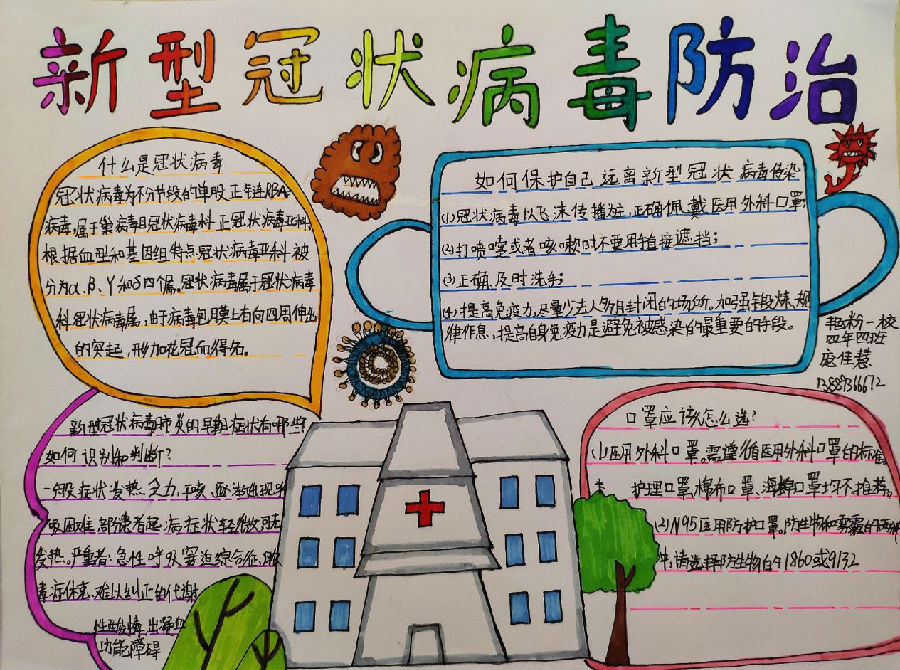 新型冠状病毒防治
什么是冠状病毒
冠状病毒为不分节段的单股正链RBA
病毒,属于巢病毒目冠状病毒科正冠状病毒亚科,
根据血型和基因组特点冠状病毒亚科被
分为α、β、γ和δ四偏。冠状病毒属于冠状病毒
科冠状病毒属,由于病毒包膜上有向四周伸出
的突起,形加花冠而得名。
如何保护自己远离新型冠状病毒传染
(1)冠状病毒以飞沫传播,正确佩戴医用外科口罩;
(2)打喷嚏或者咳嗽时不要用直接遮挡;
(3)正确及时洗手;
(4)提高免疫力,尽量少去人多月封闭的场所。加强锻炼,规
律作息,提高自身免疫力是避免被感染的最重要的手段。
一校
四年四班
新型冠状病毒肺炎的早期症状有哪些?
如何识别和判断?
一般症状发热、乏力、干咳、逐渐出现呼
吸困难,部分患者起病症状轻微
发热。严重者:急性呼吸窘迫综合征、脓
毒症休克、难以纠正的代谢
性酸 出凝血
功能障碍
口罩应该怎么选?
(1)医用外科口罩。需遵循医用外科口罩的标准。
护理口罩,棉布口罩、海绵口罩均不推荐。
(2)N95医用防护口罩。防生物和雾霾的
请选择防生物的1860或9132